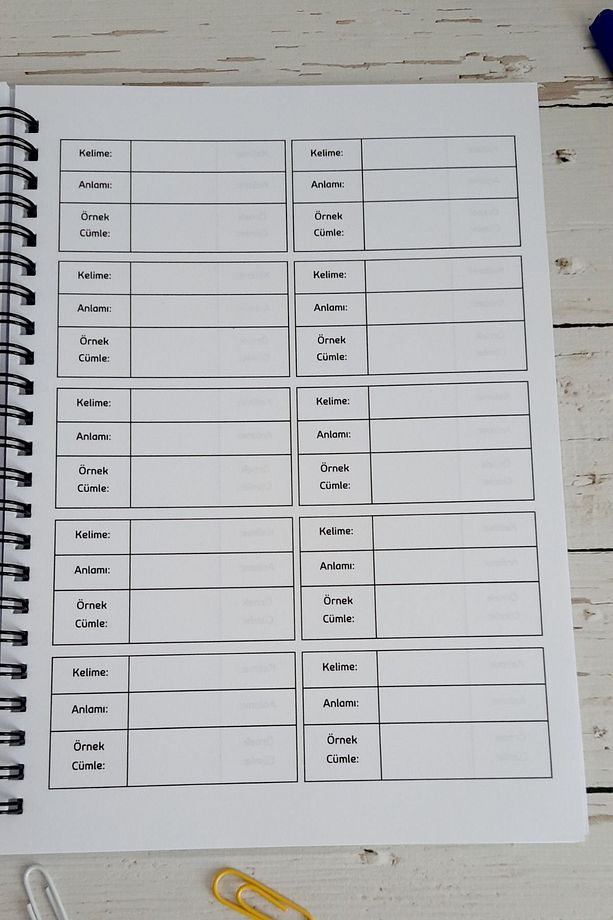 Kelime:
Anlamı:
Örnek
Cümle:
Kelime:
Anlamı:
Örnek
Cümle:
Kelime:
Anlamı:
Örnek
Cümle:
Kelime:
Anlamı:
Örnek
Cümle:
Kelime:
Anlamı:
Örnek
Cümle:
Kelime:
Anlamı:
Örnek
Cümle:
Kelime:
Anlamı:
Örnek
Cümle:
Kelime:
Anlamı:
Örnek
Cümle:
Kelime:
Anlamı:
Örnek
Cümle:
Kelime:
Anlamı:
Örnek
Cümle: